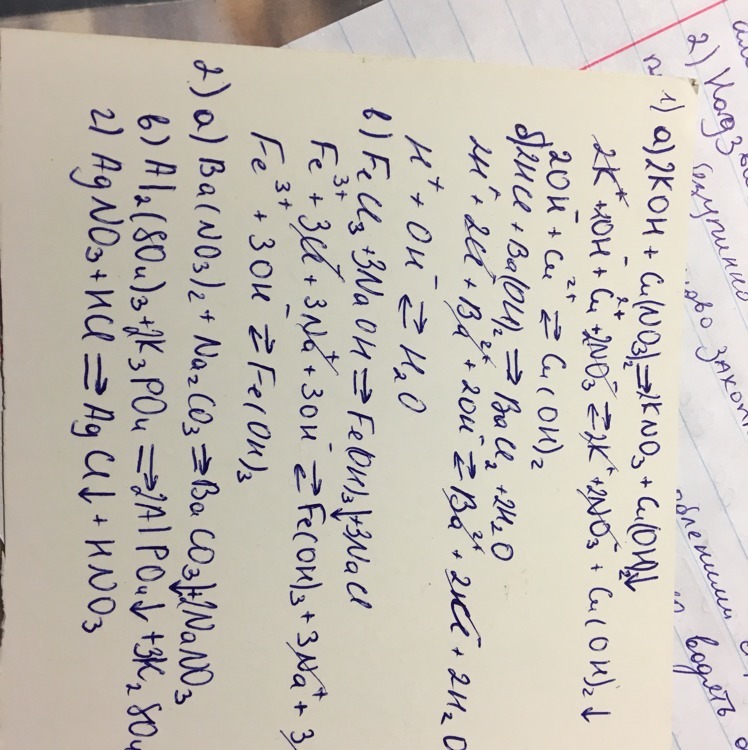 1) а) 2KOH + Cu(NO3)2 ⇌ 2KNO3 + Cu(OH)2↓
2K⁺ + 2OH⁻ + Cu²⁺ + 2NO3⁻ ⇌ 2K⁺ + 2NO3⁻ + Cu(OH)2↓
2OH⁻ + Cu²⁺ ⇌ Cu(OH)2
б) 2HCl + Ba(OH)2 ⇌ BaCl2 + 2H2O
2H⁺ + 2Cl⁻ + Ba²⁺ + 2OH⁻ ⇌ Ba²⁺ + 2Cl⁻ + 2H2O
H⁺ + OH⁻ ⇌ H2O
в) FeCl3 + 3NaOH ⇌ Fe(OH)3↓ + 3NaCl
Fe³⁺ + 3Cl⁻ + 3Na⁺ + 3OH⁻ ⇌ Fe(OH)3 + 3Na⁺ + 3
Fe³⁺ + 3OH⁻ ⇌ Fe(OH)3
2) а) Ba(NO3)2 + Na2CO3 ⇌ BaCO3↓ + 2NaNO3
в) Al2(SO4)3 + 2K3PO4 ⇌ 2AlPO4↓ + 3K2SO4
г) AgNO3 + HCl ⇌ AgCl↓ + HNO3
2)
водять